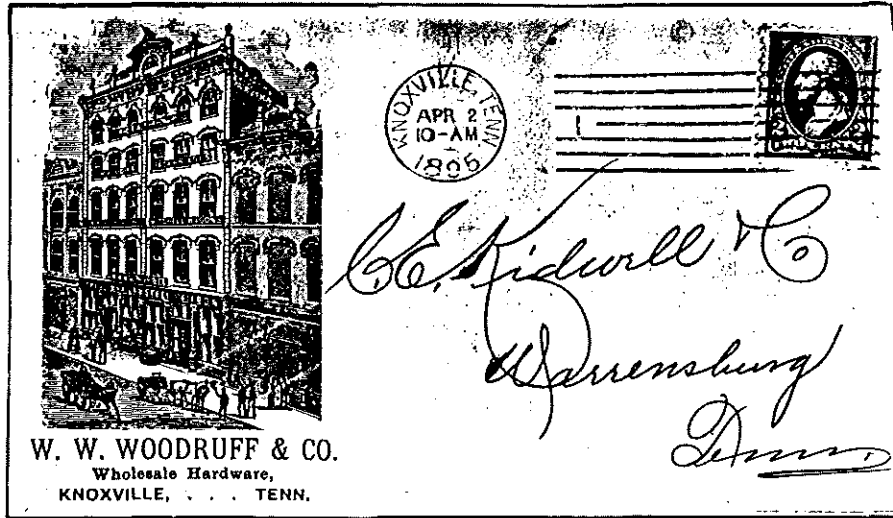 KNOXVILLE, TENN
APR 2
10-AM
1895
1
C. E. Kidwell & Co
Warrensburg
Tenn.
W. W. WOODRUFF & CO.
Wholesale Hardware,
KNOXVILLE, . . . TENN.